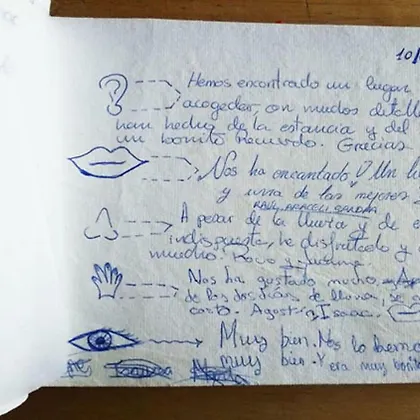 10/
Hemos encontrado un lugar
acogedor, con muchos detall
han hecho de la estancia y del
un bonito recuerdo. Gracias
Nos ha encantado ! Un lu
y una de las mejores
RAUL ARACELI
A pesar de la lluvia y de e
indispuesta, he disfrutado y
mucho. Rocio y
Nos ha gustado mucho,
de los dos días de lluvia, se
corto. Agostin, Isaac
Muy bien. Nos lo hemo
muy bien. Y era muy bonito